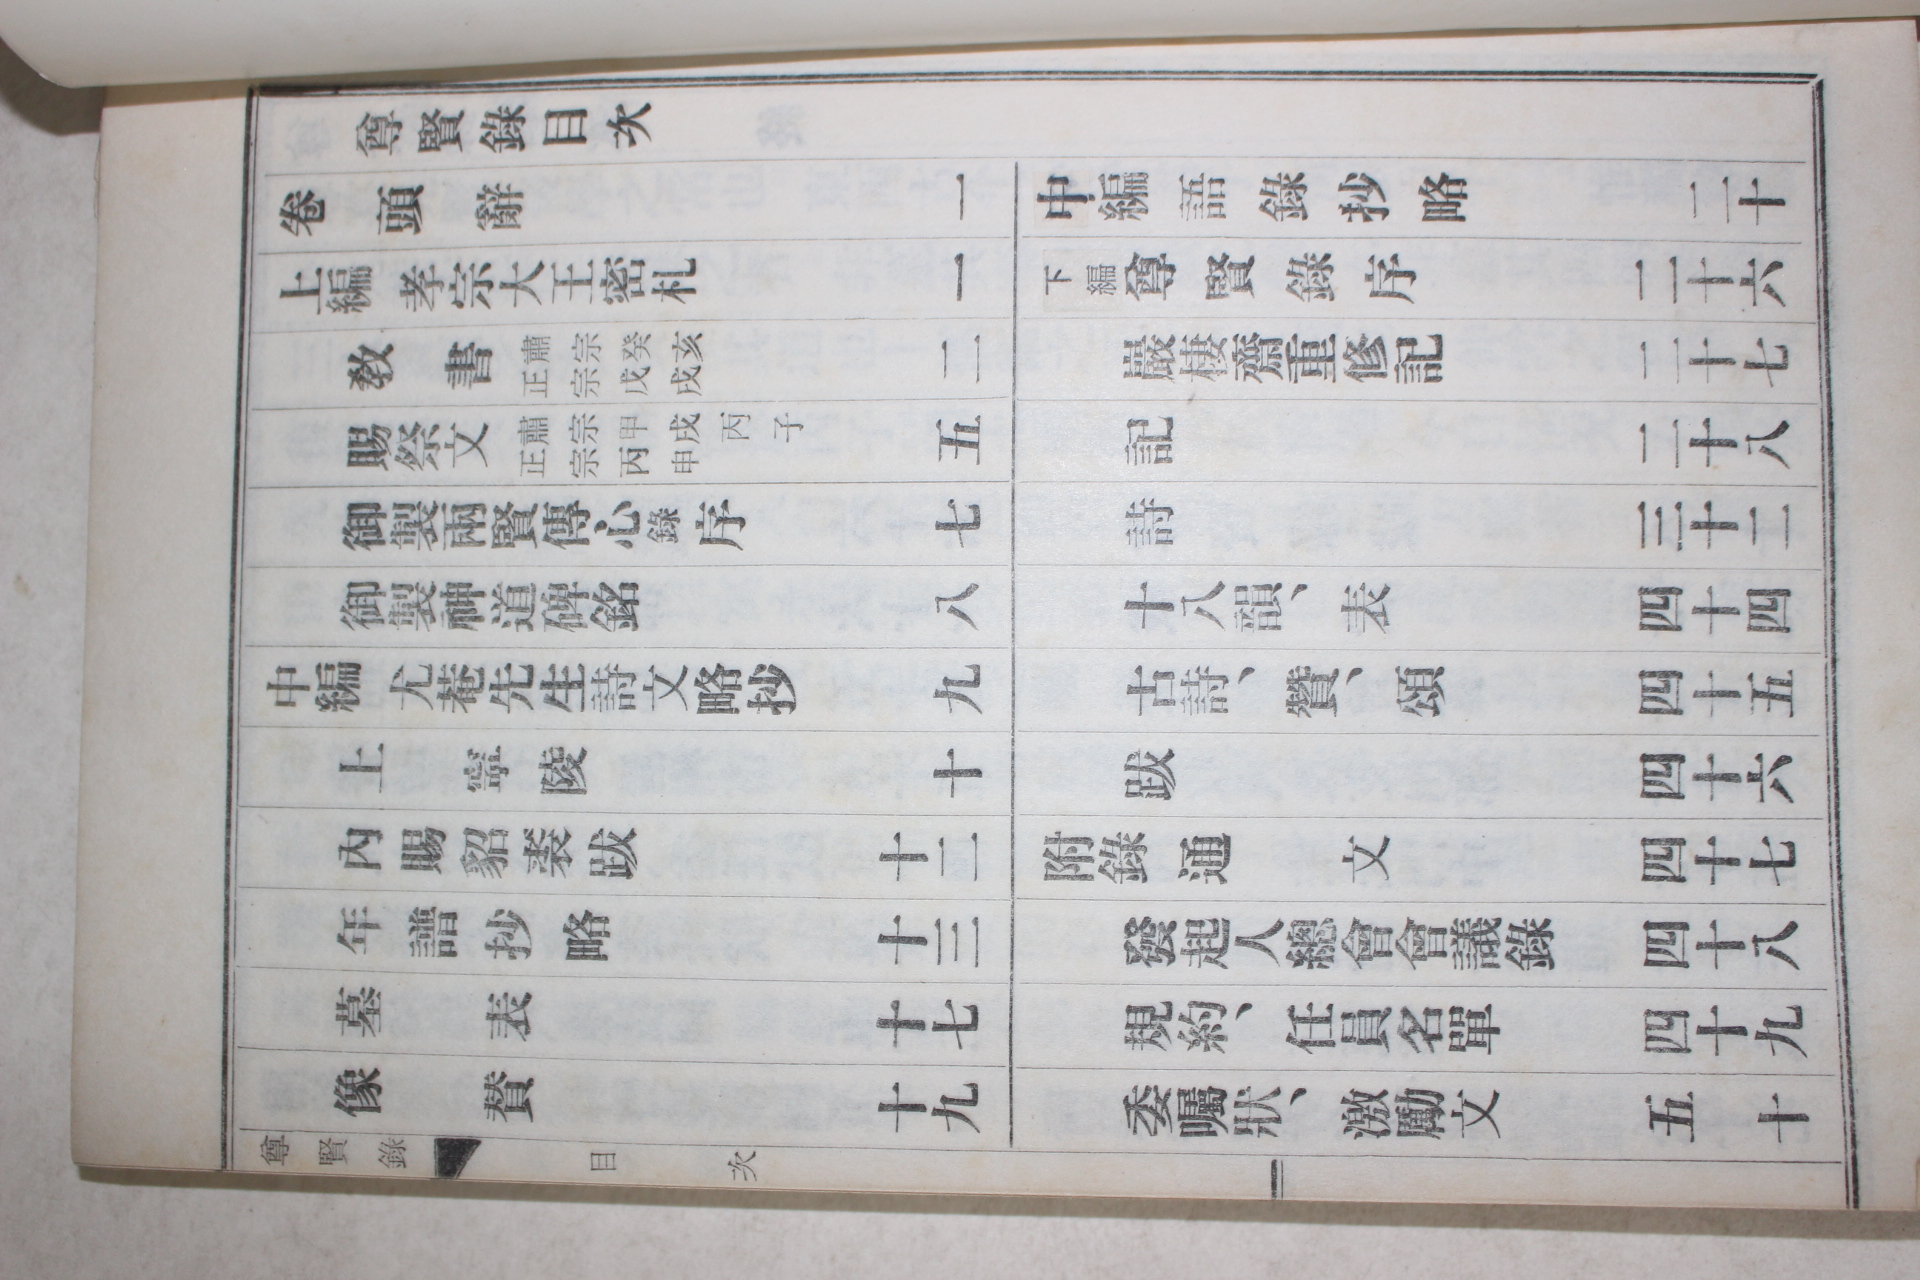 尊賢錄目次
卷頭辭 一
上編 孝宗大王密札 一
敎書 肅宗癸亥 正宗戊戌 二
賜祭文 肅宗甲戌丙子 正宗丙申 五
御製兩賢傳心錄序 七
御製神道碑銘 八
中編 尤菴先生詩文略抄 九
上寧陵 十
內賜貂裘跋 十二
年譜抄略 十三
墓表 十七
像賛 十九
中編語錄抄略 二十
下編 尊賢錄序 二十六
巖棲齋重修記 二十七
記 二十八
詩 三十二
十八韻、表 四十四
古詩、贊、頌 四十五
跋 四十六
附錄 通文 四十七
發起人總會會議錄 四十八
規約、任員名單 四十九
委囑狀、激勵文 五十
尊賢錄 目次 一